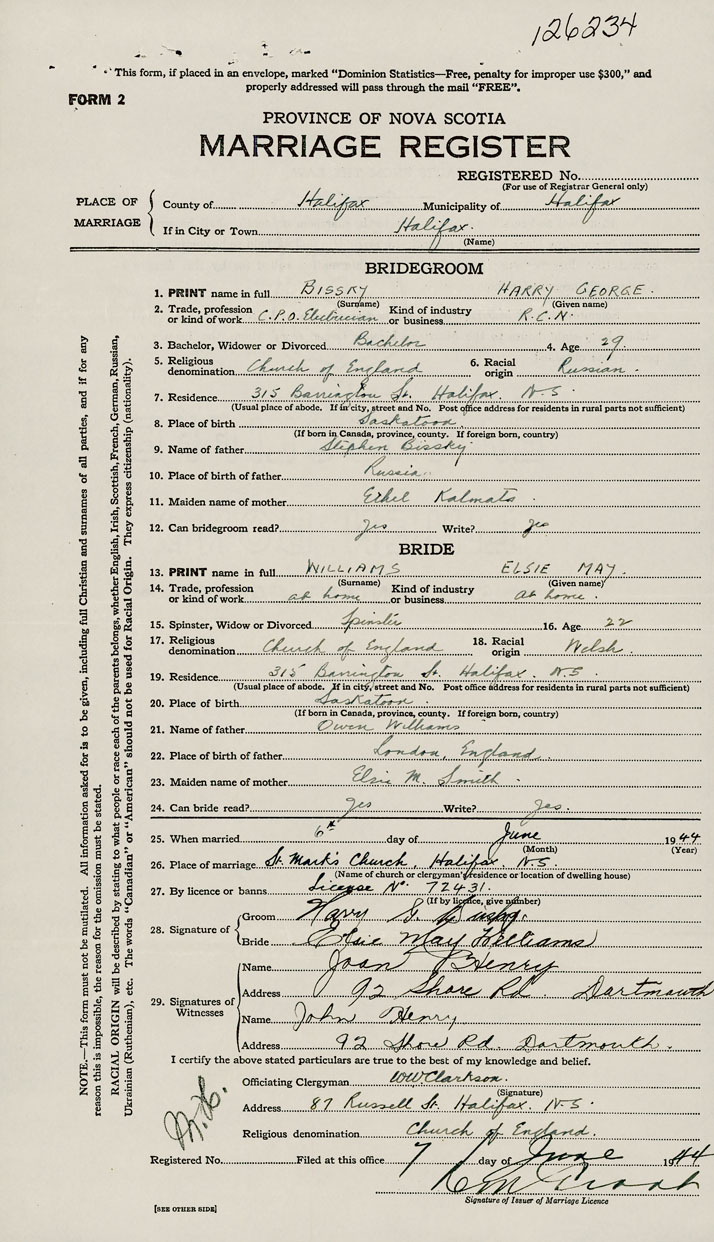 126234
This form, if placed in an envelope, marked "Dominion Statistics—Free, penalty for improper use $300," and
properly addressed will pass through the mail "FREE".
FORM 2
PROVINCE OF NOVA SCOTIA
MARRIAGE REGISTER
REGISTERED No.
(For use of Registrar General only)
PLACE OF MARRIAGE
County of Halifax Municipality of Halifax
If in City or Town Halifax.
(Name)
BRIDEGROOM
1. PRINT name in full BISSKY HARRY GEORGE.
(Surname) (Given name)
2. Trade, profession or kind of work C.P.O. Electrician Kind of industry or business R.C.N.
3. Bachelor, Widower or Divorced Bachelor 4. Age 29
5. Religious denomination Church of England 6. Racial origin Russian.
7. Residence 315 Barrington St. Halifax. N.S.
(Usual place of abode. If in city, street and No. Post office address for residents in rural parts not sufficient)
8. Place of birth Saskatoon
(If born in Canada, province, county. If foreign born, country)
9. Name of father Stephen Bissky
10. Place of birth of father Russia.
11. Maiden name of mother Ethel Kalmats.
12. Can bridegroom read? yes Write? yes
BRIDE
13. PRINT name in full WILLIAMS ELSIE MAY.
(Surname) (Given name)
14. Trade, profession or kind of work at home Kind of industry or business at home.
15. Spinster, Widow or Divorced Spinster 16. Age 22
17. Religious denomination Church of England 18. Racial origin Welsh.
19. Residence 315 Barrington St. Halifax. N.S.
(Usual place of abode. If in city, street and No. Post office address for residents in rural parts not sufficient)
20. Place of birth Saskatoon.
(If born in Canada, province, county. If foreign born, country)
21. Name of father Owen Williams
22. Place of birth of father London, England.
23. Maiden name of mother Elsie M. Smith.
24. Can bride read? yes Write? yes.
25. When married 6th day of June 1944
(Month) (Year)
26. Place of marriage St. Mark's Church, Halifax. N.S.
(Name of church or clergyman's residence or location of dwelling house)
27. By licence or banns License No. 72431.
(If by licence, give number)
28. Signature of
Groom Harry G.
Bride Elsie May Williams
29. Signatures of Witnesses
Name Joan Henry
Address 92 Shore Rd. Dartmouth
Name John Henry
Address 92 Shore Rd. Dartmouth.
I certify the above stated particulars are true to the best of my knowledge and belief.
Officiating Clergyman WWClarkson.
(Signature)
Address 87 Russell St. Halifax. N.S.
Religious denomination Church of England.
Registered No. Filed at this office 7 day of June 1944
Signature of Issuer of Marriage Licence
[SEE OTHER SIDE]
NOTE.—This form must not be mutilated. All information asked for is to be given, including full Christian and surnames of all parties, and if for any
reason this is impossible, the reason for the omission must be stated.
RACIAL ORIGIN will be described by stating to what people or race each of the parents belongs, whether English, Irish, Scottish, French, German, Russian,
Ukrainian (Ruthenian), etc. The words "Canadian" or "American" should not be used for Racial Origin. They express citizenship (nationality).